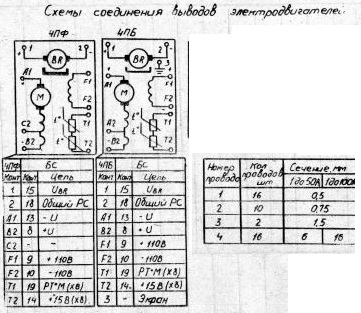 Схемы соединения выводов электродвигателей
4ПФ 4ПБ
1 2 1 2
+ BR - + BR -
3
A1 F1 A1 F1
M M
F2 F2
C2 T1 T1
t° t°
B2 T2 A2 B2 T2
4ПФ БС
Конт Конт Цепь
1 15 UBR
2 18 Общий РС
A1 13 -U
B2 8 +U
C2 - -
F1 9 +110В
F2 10 -110В
T1 19 РТ°М(ХВ)
T2 14 +15В(ХВ)
4ПБ БС
Конт Конт Цепь
1 15 UBR
2 18 Общий РС
A1 13 -U
B2 8 +U
F1 9 +110В
F2 10 -110В
T1 19 РТ°М(ХВ)
T2 14 +15В(ХВ)
3 - Экран
Номер провода Кол. проводов шт Сечение, мм
1 до 50А 1 до 100А
1 16 0,5
2 10 0,75
3 2 1,5
4 16 6 16